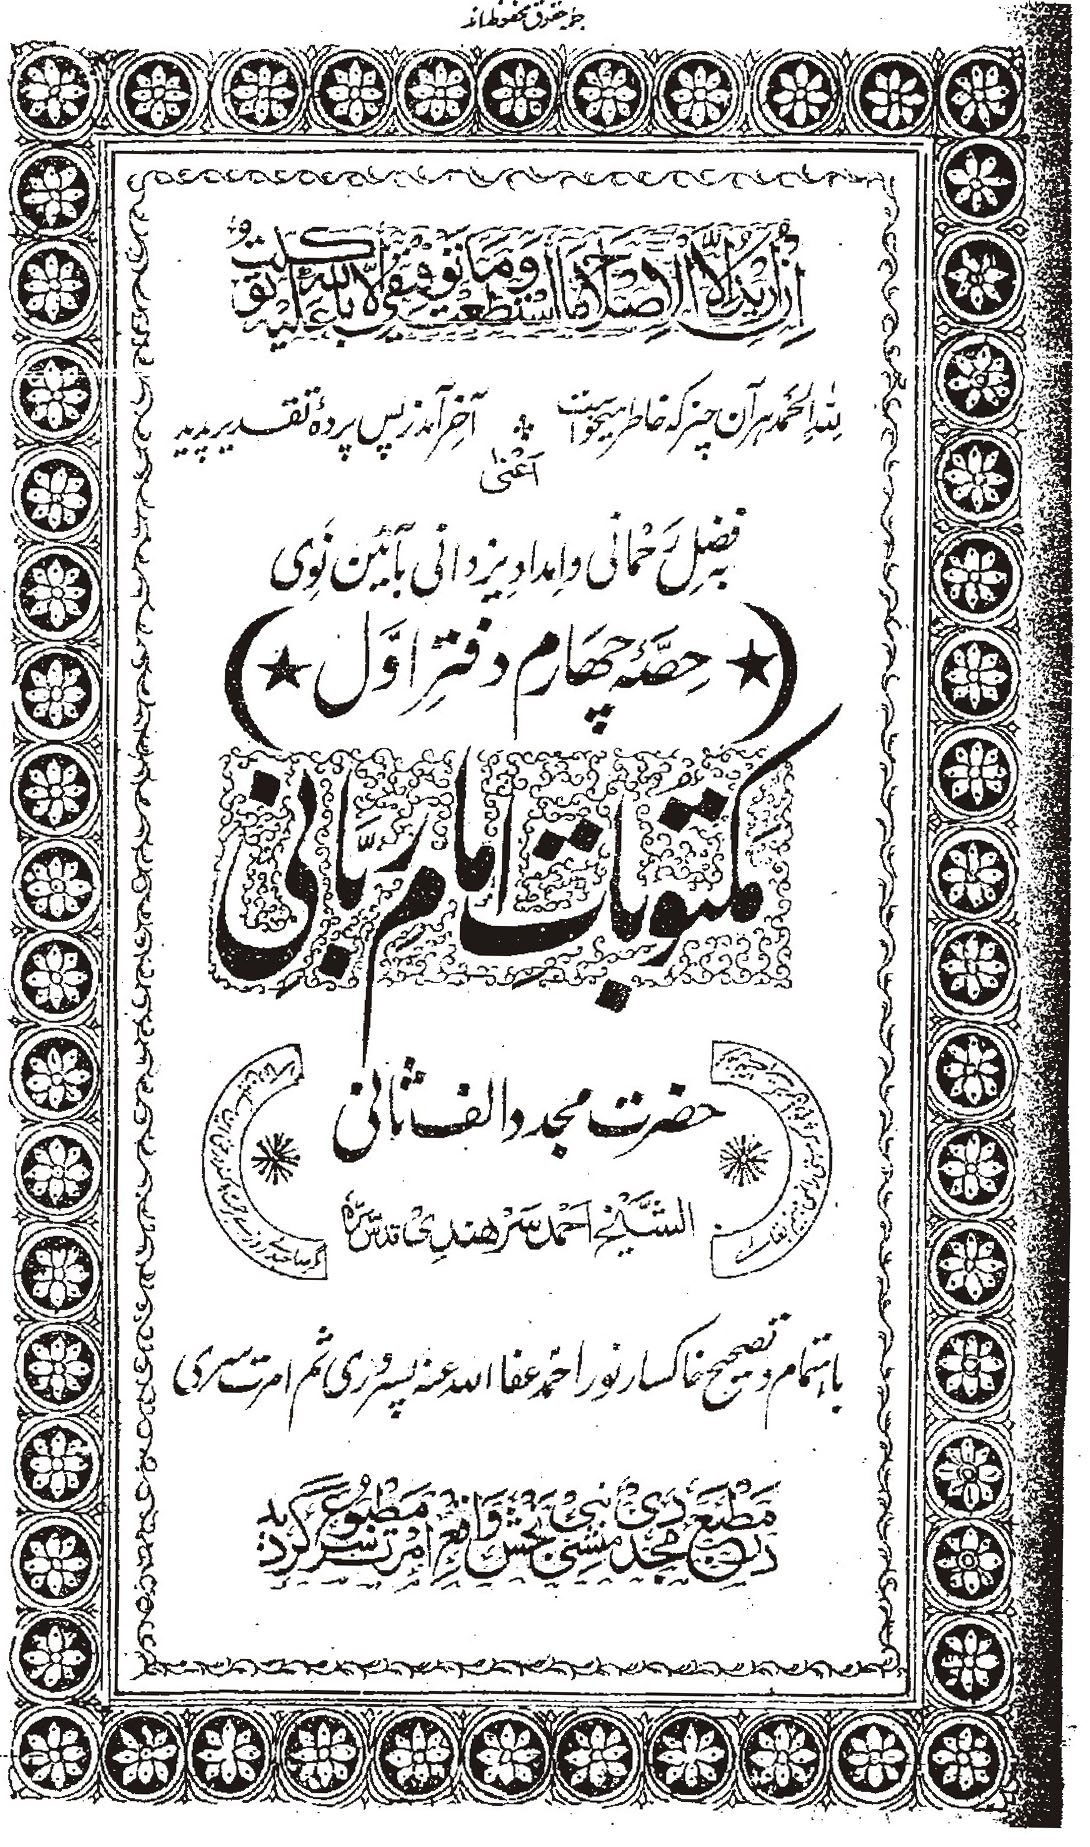 جملہ حقوق محفوظ اند
اِنْ اُرِيْدُ اِلَّا الْاِصْلَاحَ مَا اسْتَطَعْتُ وَمَا تَوْفِيْقِيْ اِلَّا بِاللّٰهِ عَلَيْهِ تَوَكَّلْتُ
للّٰہِ الحمد ہر آن چیز کہ خاطر میخواست
آخر آمد ز پس پردۂ تقدیر پدید
اَعْنی
بہ فضلِ رحمانی و امدادِ یزدانی بآئین نَوی
حِصّۂ چہارم دفترِ اوّل
مکتوباتِ امام ربّانی
حضرت مجدد الف ثانی
الشَّیْخ احمد سَرْہندِیْ قدّس سرّہٗ
باہتمام و تصحیح خاکسار نور احمد عفا اللہ عنہ پسروری ثم امرت سری
در مَطْبَع مجددی منشی نبی بخش واقع امرت سر مَطْبُوع گردید